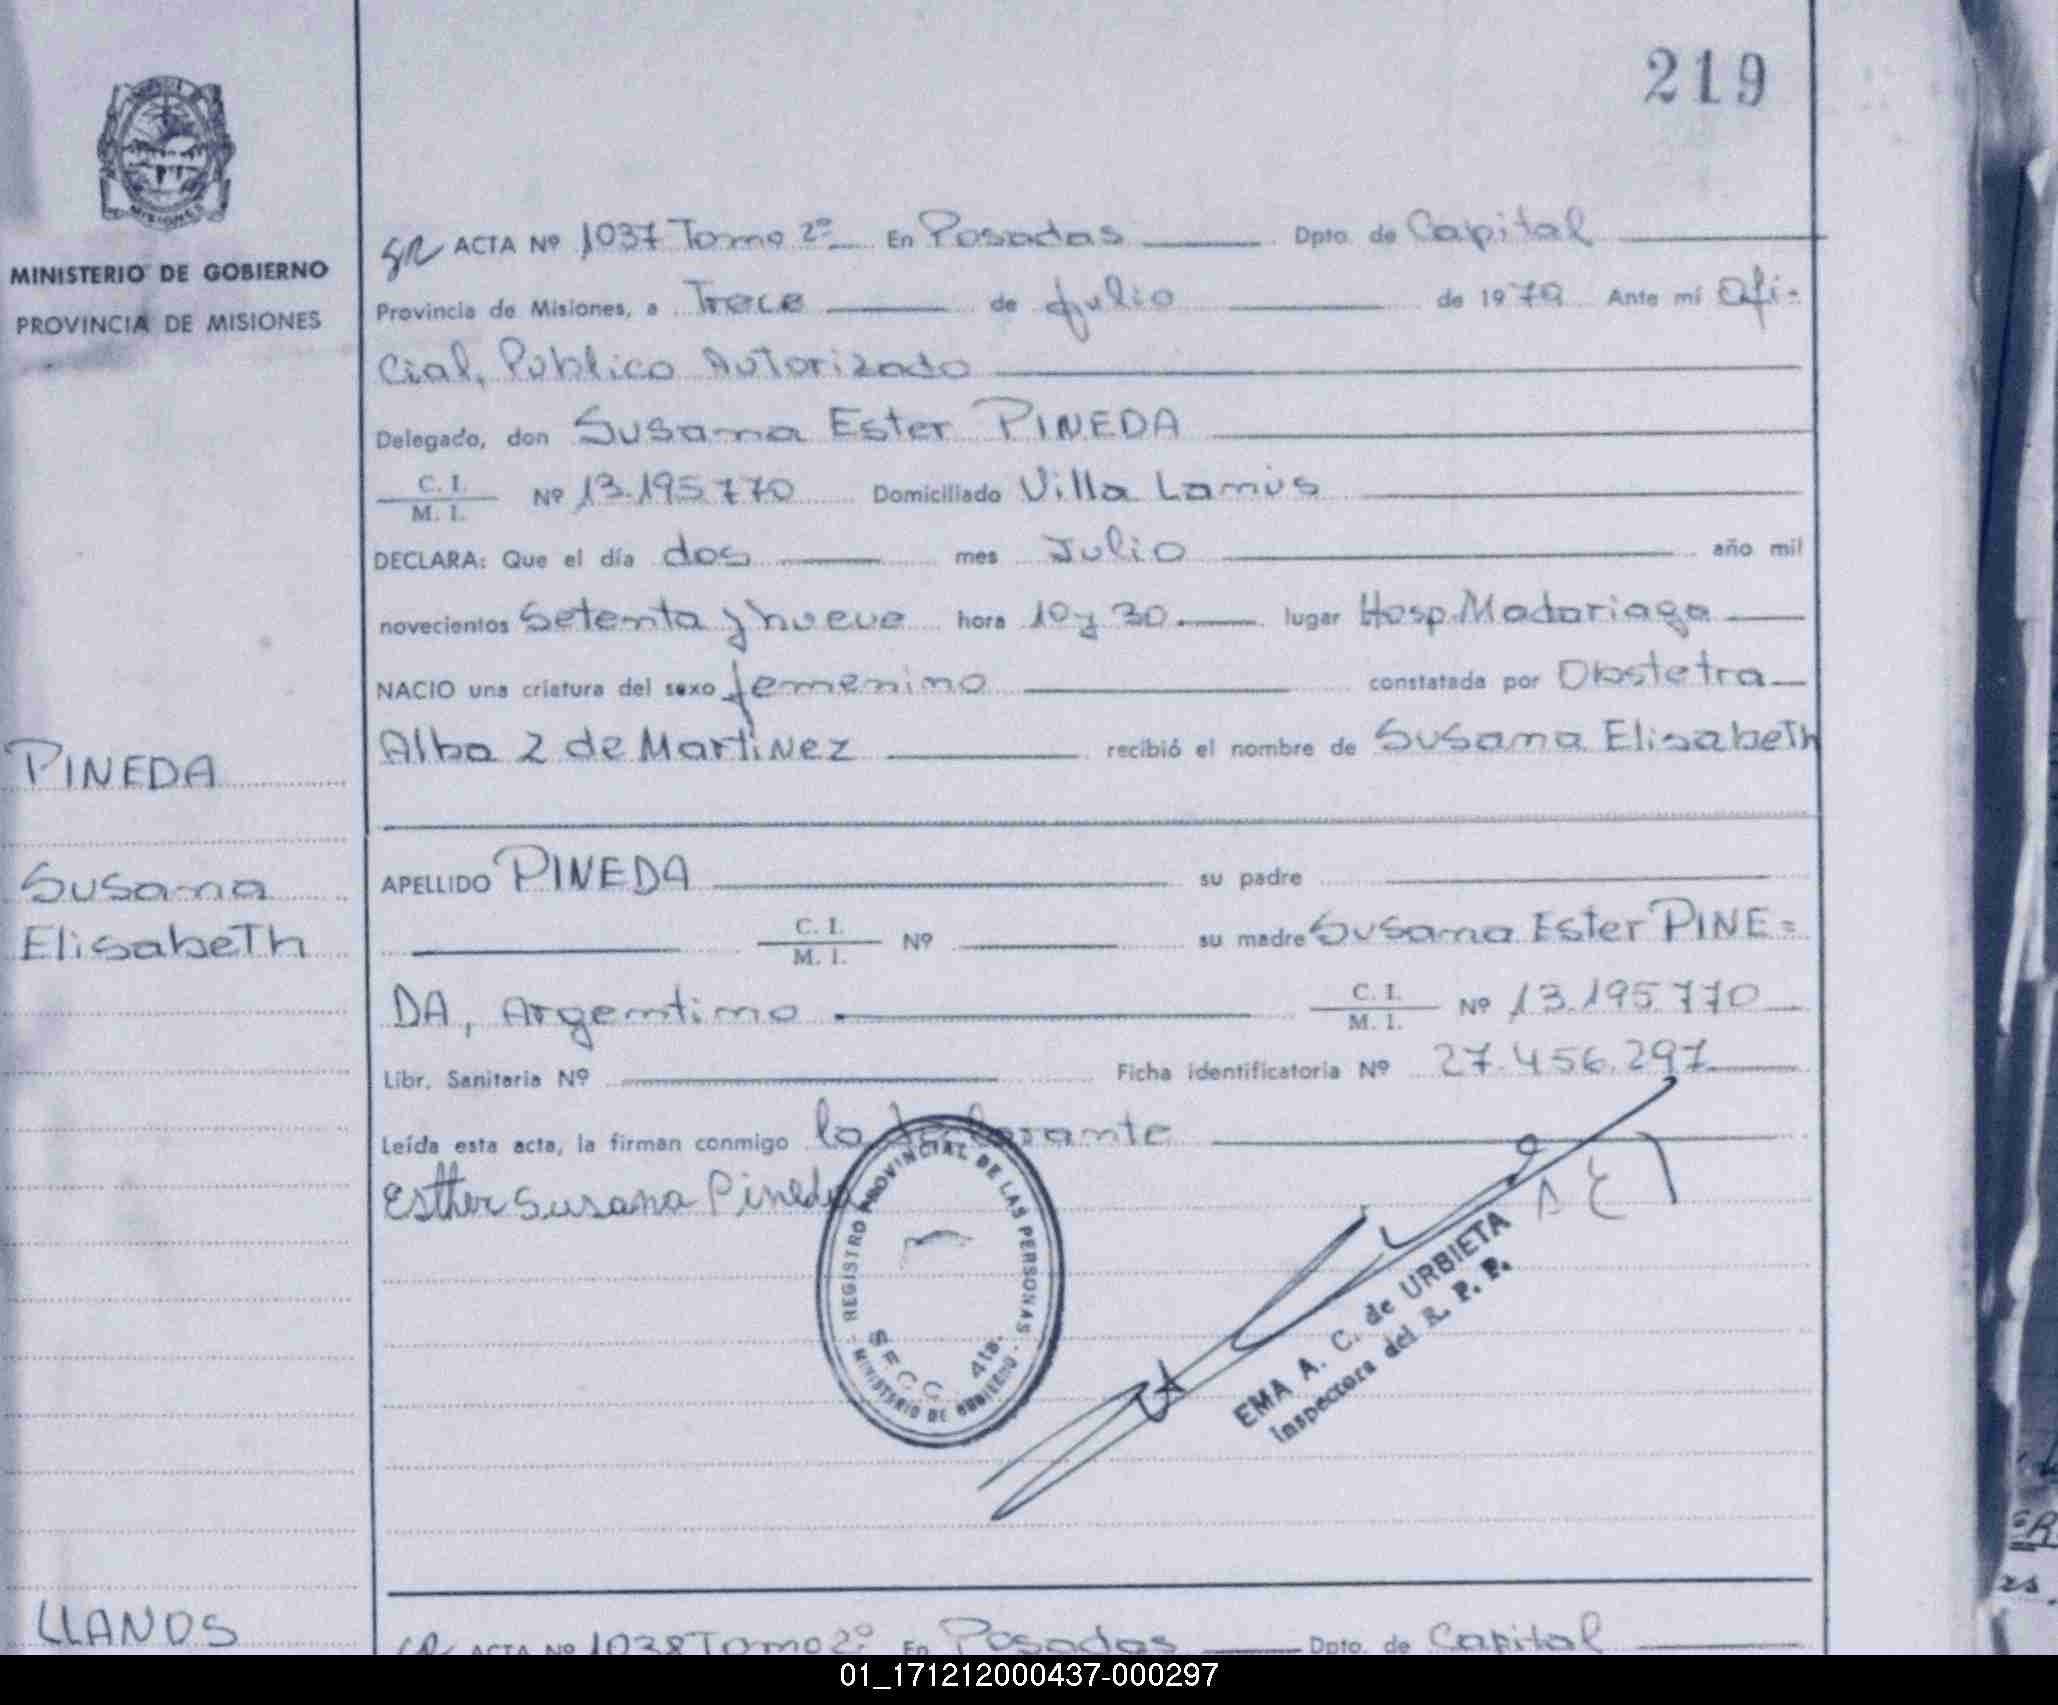 219
MISIONES
MINISTERIO DE GOBIERNO
PROVINCIA DE MISIONES
ACTA Nº 1037 Tomo 2º En Posadas Dpto. de Capital
Provincia de Misiones, a Trece de Julio de 1979 Ante mí Ofi-
cial, Publico Autorizado
Delegado, don Susana Ester PINEDA
C. I.
M. I.
Nº 13.195.770 Domiciliado Villa Lanús
DECLARA: Que el día dos mes Julio año mil
novecientos Setenta y nueve hora 10 y 30 lugar Hosp. Madariaga
NACIO una criatura del sexo femenino constatada por Obstetra
Alba Z de MartiNez recibió el nombre de Susana ElisabeTh
PINEDA
Susana
ElisabeTh
APELLIDO PINEDA su padre
C. I.
M. I.
Nº su madre Susana Ester PINE=
DA, Argentino
C. I.
M. I.
Nº 13.195.770
Libr. Sanitaria Nº Ficha identificatoria Nº 27.456.297
Leída esta acta, la firman conmigo la declarante
Esther Susana Pineda
REGISTRO PROVINCIAL DE LAS PERSONAS
SECC. 4ta.
MINISTERIO DE GOBIERNO
EMA A. C. de URBIETA
Inspectora del R. P. P.
LLANOS
ACTA Nº 1038 Tomo 2º En Posadas Dpto. de Capital
01_171212000437-000297